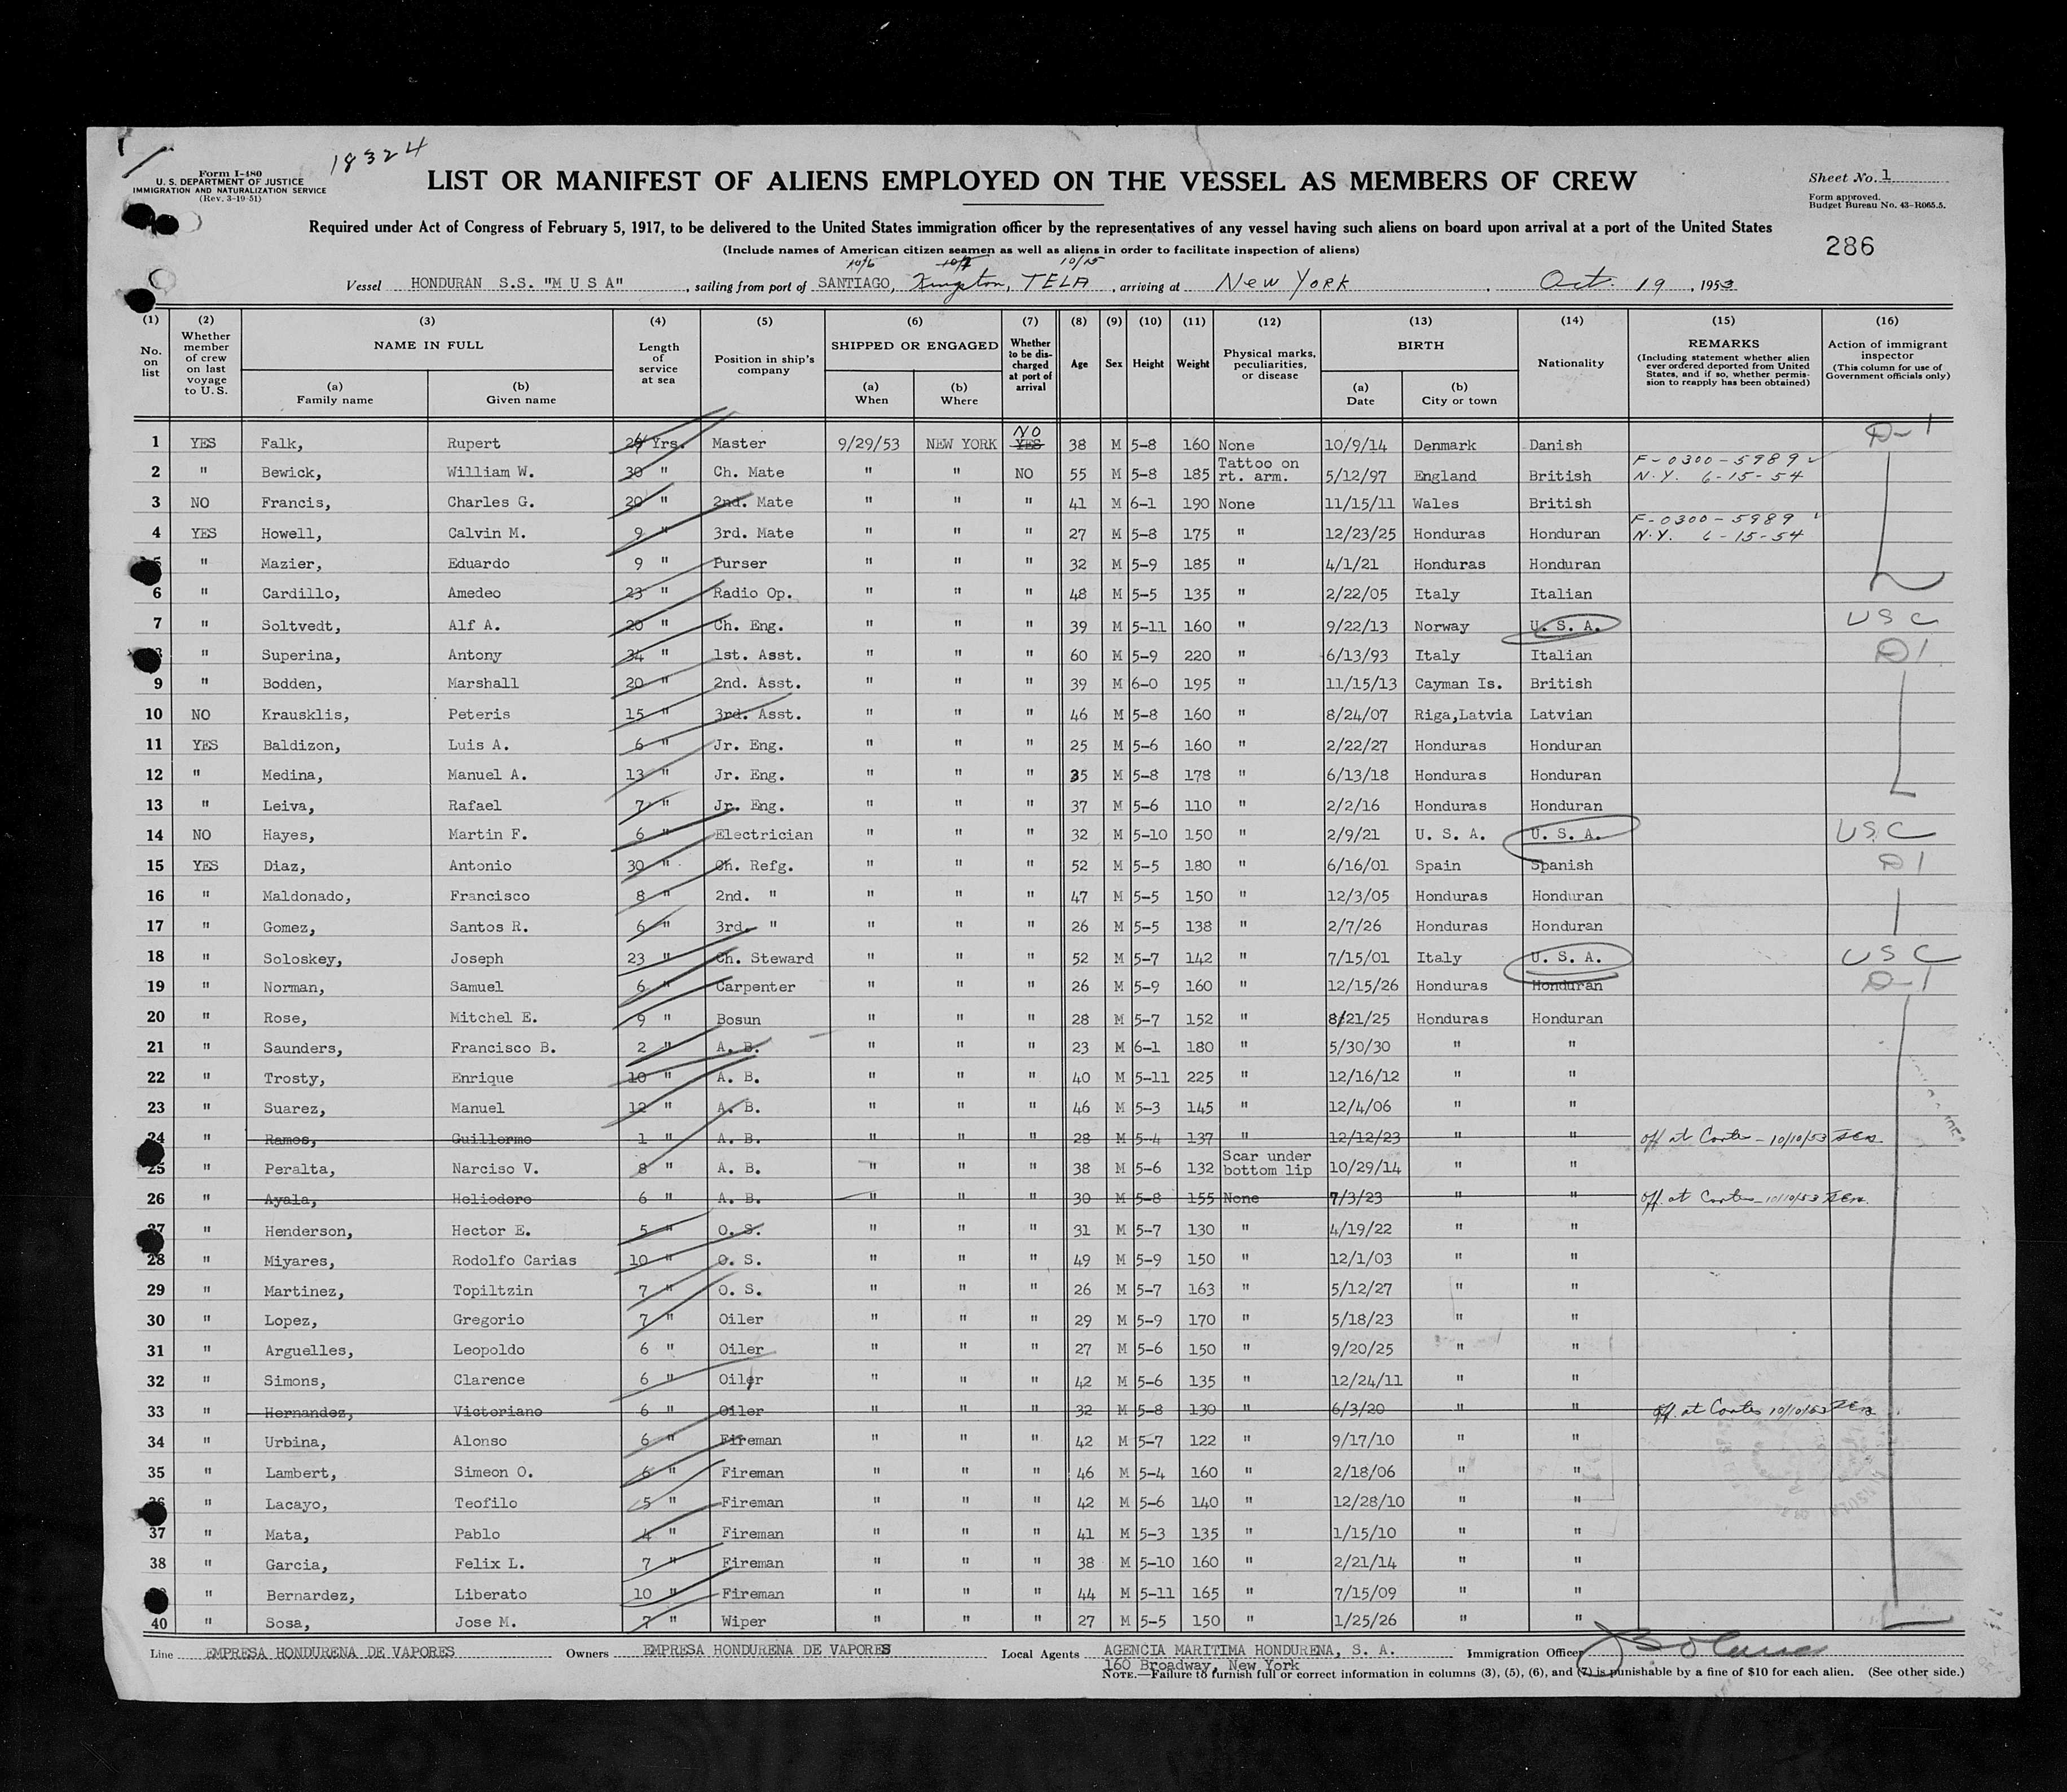 18324
Form I-480
U. S. DEPARTMENT OF JUSTICE
IMMIGRATION AND NATURALIZATION SERVICE
(Rev. 3-19-51)
LIST OR MANIFEST OF ALIENS EMPLOYED ON THE VESSEL AS MEMBERS OF CREW
Sheet No. 1
Form approved.
Budget Bureau No. 43-R065.5.
Required under Act of Congress of February 5, 1917, to be delivered to the United States immigration officer by the representatives of any vessel having such aliens on board upon arrival at a port of the United States
(Include names of American citizen seamen as well as aliens in order to facilitate inspection of aliens)
286
10/6 10/7 10/15
Vessel HONDURAN S.S. "M U S A", sailing from port of SANTIAGO, Kingston, TELA, arriving at New York, Oct. 19, 1953
(1) No. on list (2) Whether member of crew on last voyage to U.S. (3) NAME IN FULL (a) Family name (b) Given name (4) Length of service at sea (5) Position in ship's company (6) SHIPPED OR ENGAGED (a) When (b) Where (7) Whether to be discharged at port of arrival (8) Age (9) Sex (10) Height (11) Weight (12) Physical marks, peculiarities, or disease (13) BIRTH (a) Date (b) City or town (14) Nationality (15) REMARKS (Including statement whether alien ever ordered deported from United States, and if so, whether permission to reapply has been obtained) (16) Action of immigrant inspector (This column for use of Government officials only)
1 YES Falk, Rupert Yrs. Master 9/29/53 NEW YORK YES NO 38 M 5-8 160 None 10/9/14 Denmark Danish D-1
2 " Bewick, William W. 30 " Ch. Mate " " NO 55 M 5-8 185 Tattoo on rt. arm. 5/12/97 England British F-0300-5989 N.Y. 6-15-54
3 NO Francis, Charles G. 20 " 2nd. Mate " " " 41 M 6-1 190 None 11/15/11 Wales British
4 YES Howell, Calvin M. 9 " 3rd. Mate " " " 27 M 5-8 175 " 12/23/25 Honduras Honduran F-0300-5989 N.Y. 6-15-54
5 " Mazier, Eduardo 9 " Purser " " " 32 M 5-9 185 " 4/1/21 Honduras Honduran
6 " Cardillo, Amedeo 23 " Radio Op. " " " 48 M 5-5 135 " 2/22/05 Italy Italian
7 " Soltvedt, Alf A. 20 " Ch. Eng. " " " 39 M 5-11 160 " 9/22/13 Norway U. S. A. USC
8 " Superina, Antony 34 " 1st. Asst. " " " 60 M 5-9 220 " 6/13/93 Italy Italian D1
9 " Bodden, Marshall 20 " 2nd. Asst. " " " 39 M 6-0 195 " 11/15/13 Cayman Is. British
10 NO Krausklis, Peteris 15 " 3rd. Asst. " " " 46 M 5-8 160 " 8/24/07 Riga,Latvia Latvian
11 YES Baldizon, Luis A. 6 " Jr. Eng. " " " 25 M 5-6 160 " 2/22/27 Honduras Honduran
12 " Medina, Manuel A. 13 " Jr. Eng. " " " 35 M 5-8 178 " 6/13/18 Honduras Honduran
13 " Leiva, Rafael 7 " Jr. Eng. " " " 37 M 5-6 110 " 2/2/16 Honduras Honduran
14 NO Hayes, Martin F. 6 " Electrician " " " 32 M 5-10 150 " 2/9/21 U. S. A. U. S. A. USC
15 YES Diaz, Antonio 30 " Ch. Refg. " " " 52 M 5-5 180 " 6/16/01 Spain Spanish D1
16 " Maldonado, Francisco 8 " 2nd. " " " " 47 M 5-5 150 " 12/3/05 Honduras Honduran
17 " Gomez, Santos R. 6 " 3rd. " " " " 26 M 5-5 138 " 2/7/26 Honduras Honduran
18 " Soloskey, Joseph 23 " Ch. Steward " " " 52 M 5-7 142 " 7/15/01 Italy U. S. A. USC
19 " Norman, Samuel 6 " Carpenter " " " 26 M 5-9 160 " 12/15/26 Honduras Honduran D-1
20 " Rose, Mitchel E. 9 " Bosun " " " 28 M 5-7 152 " 8/21/25 Honduras Honduran
21 " Saunders, Francisco B. 2 " A. B. " " " 23 M 6-1 180 " 5/30/30 " "
22 " Trosty, Enrique 10 " A. B. " " " 40 M 5-11 225 " 12/16/12 " "
23 " Suarez, Manuel 12 " A. B. " " " 46 M 5-3 145 " 12/4/06 " "
24 " Ramos, Guillermo 1 " A. B. " " " 28 M 5-4 137 " 12/12/23 " " off at Cortes - 10/10/53
25 " Peralta, Narciso V. 8 " A. B. " " " 38 M 5-6 132 Scar under bottom lip 10/29/14 " "
26 " Ayala, Heliodoro 6 " A. B. " " " 30 M 5-8 155 None 7/3/23 " " off at Cortes - 10/10/53
27 " Henderson, Hector E. 5 " O. S. " " " 31 M 5-7 130 " 4/19/22 " "
28 " Miyares, Rodolfo Carias 10 " O. S. " " " 49 M 5-9 150 " 12/1/03 " "
29 " Martinez, Topiltzin 7 " O. S. " " " 26 M 5-7 163 " 5/12/27 " "
30 " Lopez, Gregorio 7 " Oiler " " " 29 M 5-9 170 " 5/18/23 " "
31 " Arguelles, Leopoldo 6 " Oiler " " " 27 M 5-6 150 " 9/20/25 " "
32 " Simons, Clarence 6 " Oiler " " " 42 M 5-6 135 " 12/24/11 " "
33 " Hernandez, Victoriano 6 " Oiler " " " 32 M 5-8 130 " 6/3/20 " " off at Cortes 10/10/53
34 " Urbina, Alonso 6 " Fireman " " " 42 M 5-7 122 " 9/17/10 " "
35 " Lambert, Simeon O. 6 " Fireman " " " 46 M 5-4 160 " 2/18/06 " "
36 " Lacayo, Teofilo 5 " Fireman " " " 42 M 5-6 140 " 12/28/10 " "
37 " Mata, Pablo 4 " Fireman " " " 41 M 5-3 135 " 1/15/10 " "
38 " Garcia, Felix L. 7 " Fireman " " " 38 M 5-10 160 " 2/21/14 " "
" Bernardez, Liberato 10 " Fireman " " " 44 M 5-11 165 " 7/15/09 " "
40 " Sosa, Jose M. 7 " Wiper " " " 27 M 5-5 150 " 1/25/26 " "
Line EMPRESA HONDURENA DE VAPORES Owners EMPRESA HONDURENA DE VAPORES Local Agents AGENCIA MARITIMA HONDURENA, S. A. Immigration Officer
160 Broadway, New York
NOTE.—Failure to furnish full or correct information in columns (3), (5), (6), and (7) is punishable by a fine of $10 for each alien. (See other side.)